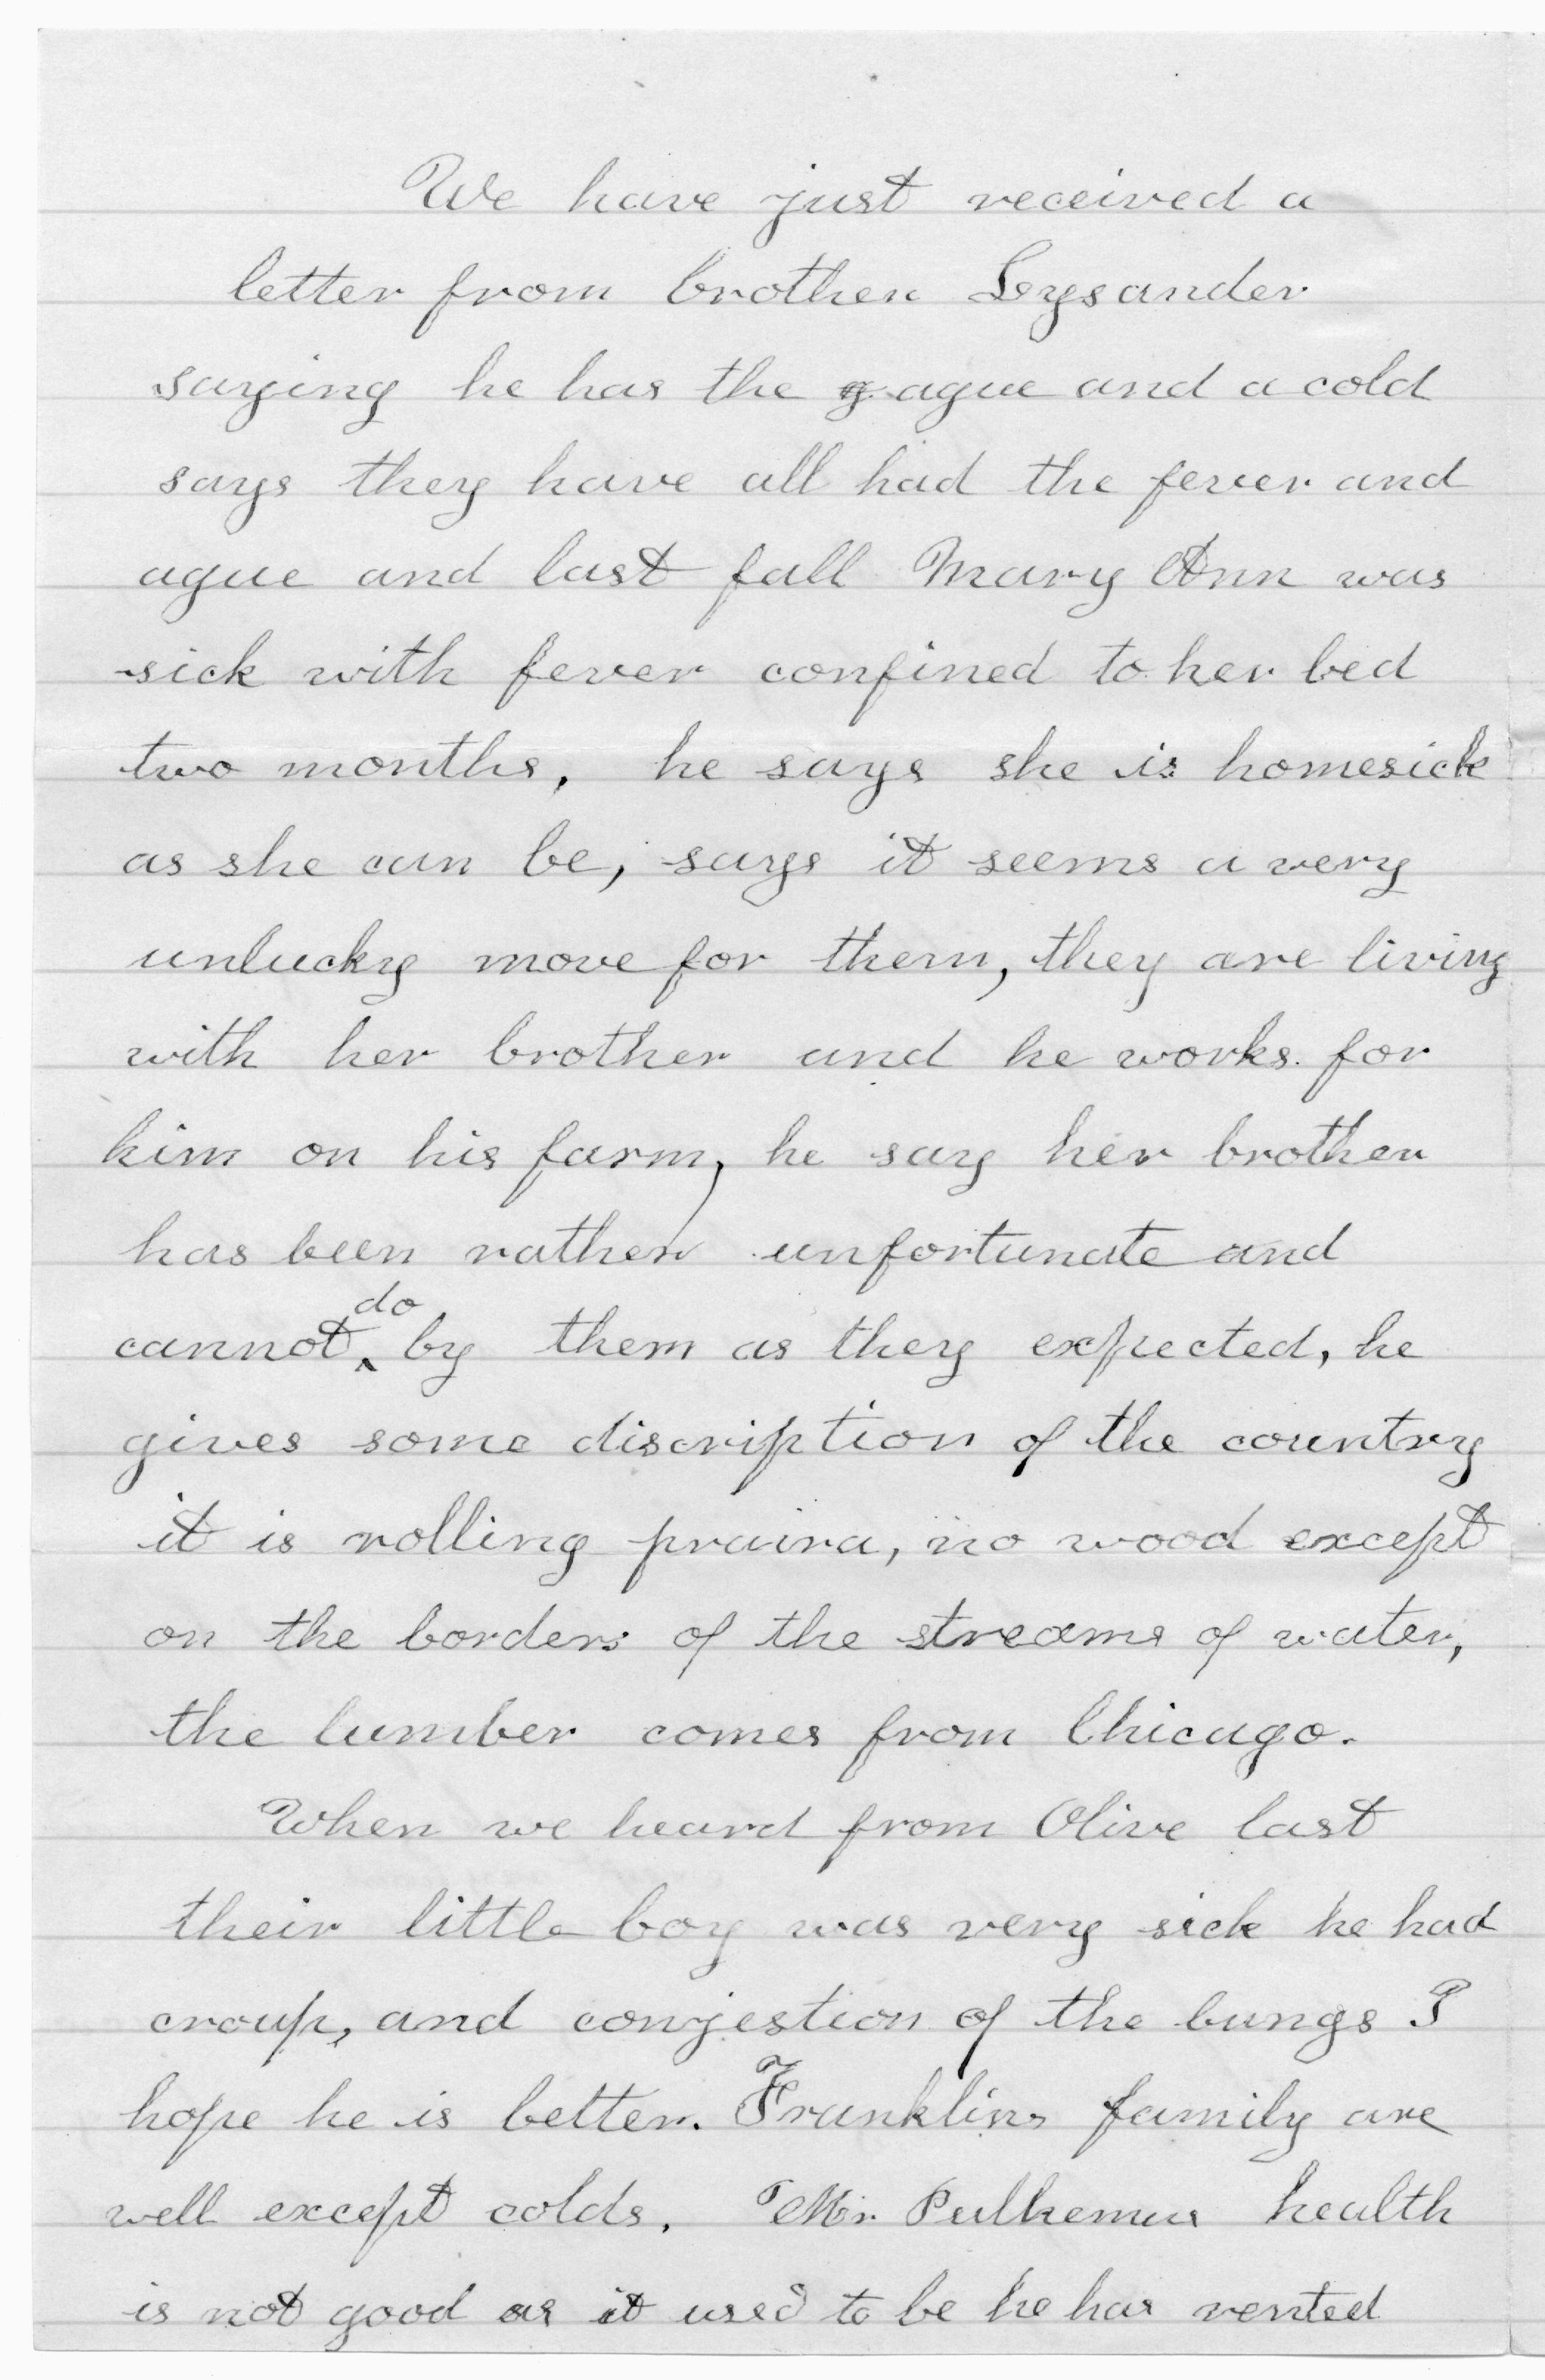 We have just received a
letter from brother Lysander
saying he has the ague and a cold
says they have all had the fever and
ague and last fall Mary Ann was
sick with fever confined to her bed
two months, he says she is homesick
as she can be, says it seems a very
unlucky move for them, they are living
with her brother and he works for
him on his farm, he say her brother
has been rather unfortunate and
cannot do by them as they expected, he
gives some discription of the country
it is rolling praira, no wood except
on the borders of the streams of water,
the lumber comes from Chicago.
When we heard from Olive last
their little boy was very sick he had
croup, and conjestion of the lungs I
hope he is better. Franklins family are
well except colds. Mr. Pulhemus health
is not good as it used to be he has rented